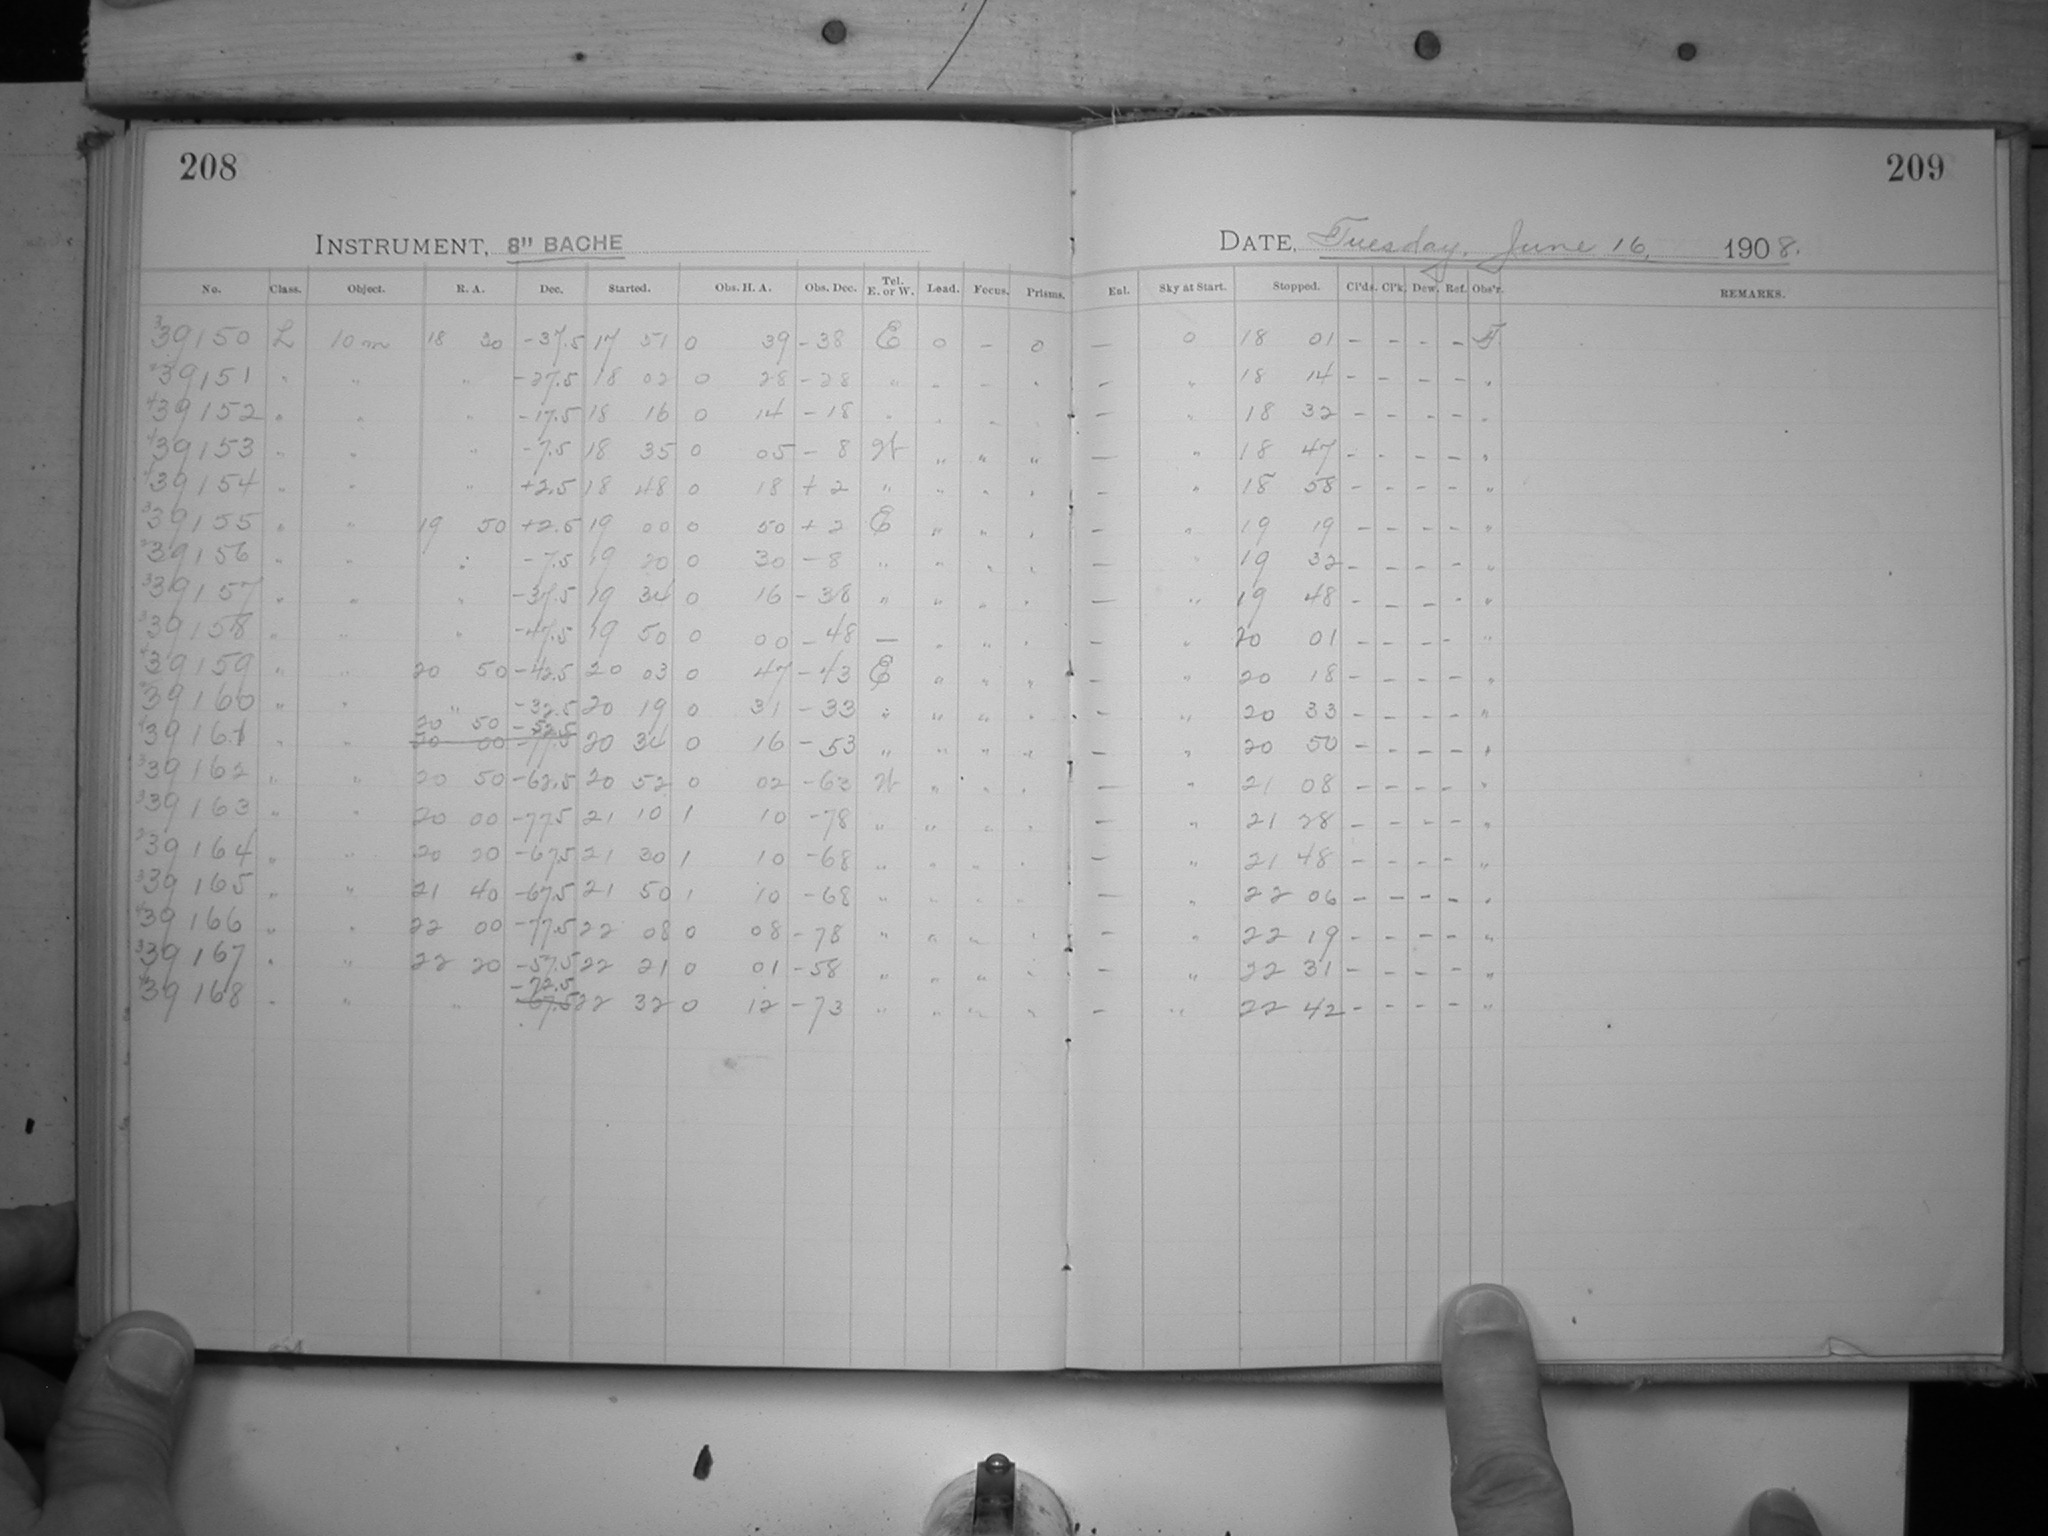 208
209
INSTRUMENT, 8" BACHE
DATE, Tuesday, June 16, 1908.
No. Class. Object. R. A. Dec. Started. Obs. H. A. Obs. Dec. Tel. E. or W. Lead. Focus. Prisms. Enl. Sky at Start. Stopped. Cl'ds. Cl'k. Dew. Ref. Obs'r. REMARKS.
39150 L 10m 18 20 -37.5 17 51 0 39 -38 E 0 - 0 - 0 18 01 - - - - F
39151 " " " -27.5 18 02 0 28 -28 " " - " - " 18 14 - - - - "
39152 " " " -17.5 18 16 0 14 -18 " " " " - " 18 32 - - - - "
39153 " " " -7.5 18 35 0 05 -8 W " " " - " 18 47 - - - - "
39154 " " " +2.5 18 48 0 18 +2 " " " " - " 18 58 - - - - "
39155 " " 19 50 +2.5 19 00 0 50 +2 E " " " - " 19 19 - - - - "
39156 " " " -7.5 19 20 0 30 -8 " " " " - " 19 32 - - - - "
39157 " " " -37.5 19 34 0 16 -38 " " " " - " 19 48 - - - - "
39158 " " " -47.5 19 50 0 00 -48 - " " " - " 20 01 - - - - "
39159 " " 20 50 -42.5 20 03 0 47 -43 E " " " - " 20 18 - - - - "
39160 " " " -32.5 20 19 0 31 -33 " " " " - " 20 33 - - - - "
20 50 -52.5
39161 " " 20 00 -77.5 20 34 0 16 -53 " " " " - " 20 50 - - - - "
39162 " " 20 50 -62.5 20 52 0 02 -63 W " " " - " 21 08 - - - - "
39163 " " 20 00 -77.5 21 10 1 10 -78 " " " " - " 21 28 - - - - "
39164 " " 20 20 -67.5 21 30 1 10 -68 " " " " - " 21 48 - - - - "
39165 " " 21 40 -67.5 21 50 1 10 -68 " " " " - " 22 06 - - - - "
39166 " " 22 00 -77.5 22 08 0 08 -78 " " " " - " 22 19 - - - - "
39167 " " 22 20 -57.5 22 21 0 01 -58 " " " " - " 22 31 - - - - "
-72.5
39168 " " " -67.5 22 32 0 12 -73 " " " " - " 22 42 - - - - "